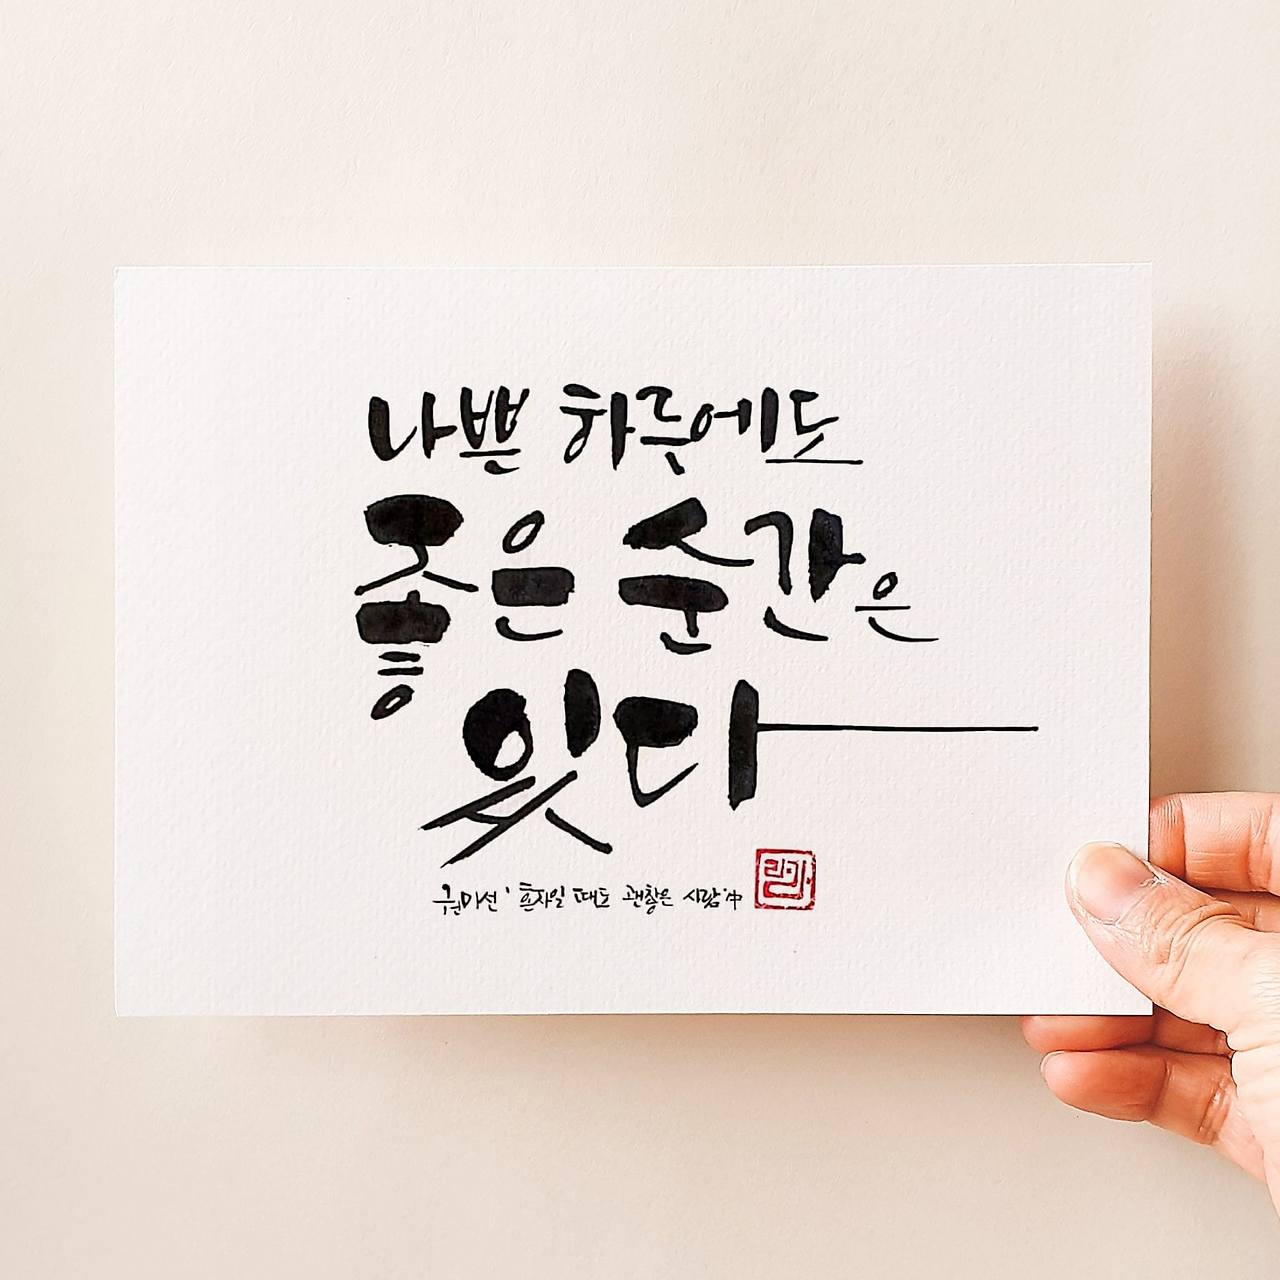 나쁜 하루에도
좋은 순간은
있다
권미선 '혼자일 때도 괜찮은 사람' 中